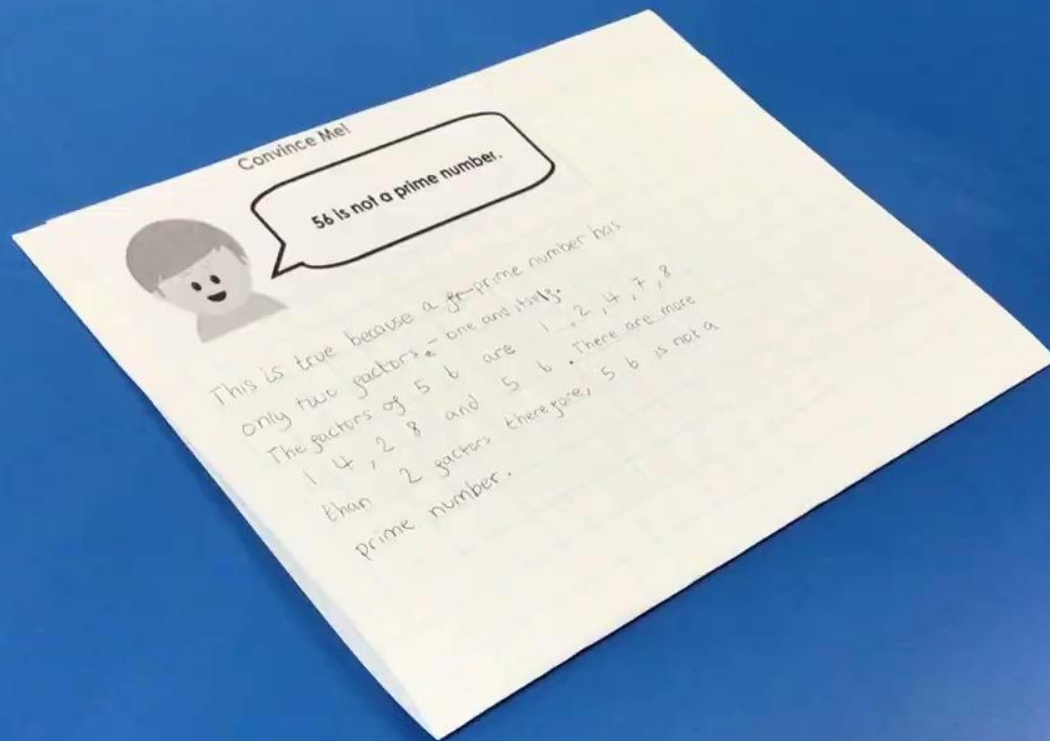 Convince Me!
56 is not a prime number.
This is true because a prime number has
only two factors - one and itself.
The factors of 56 are 1, 2, 4, 7, 8
14, 28 and 56. There are more
than 2 factors therefore, 56 is not a
prime number.